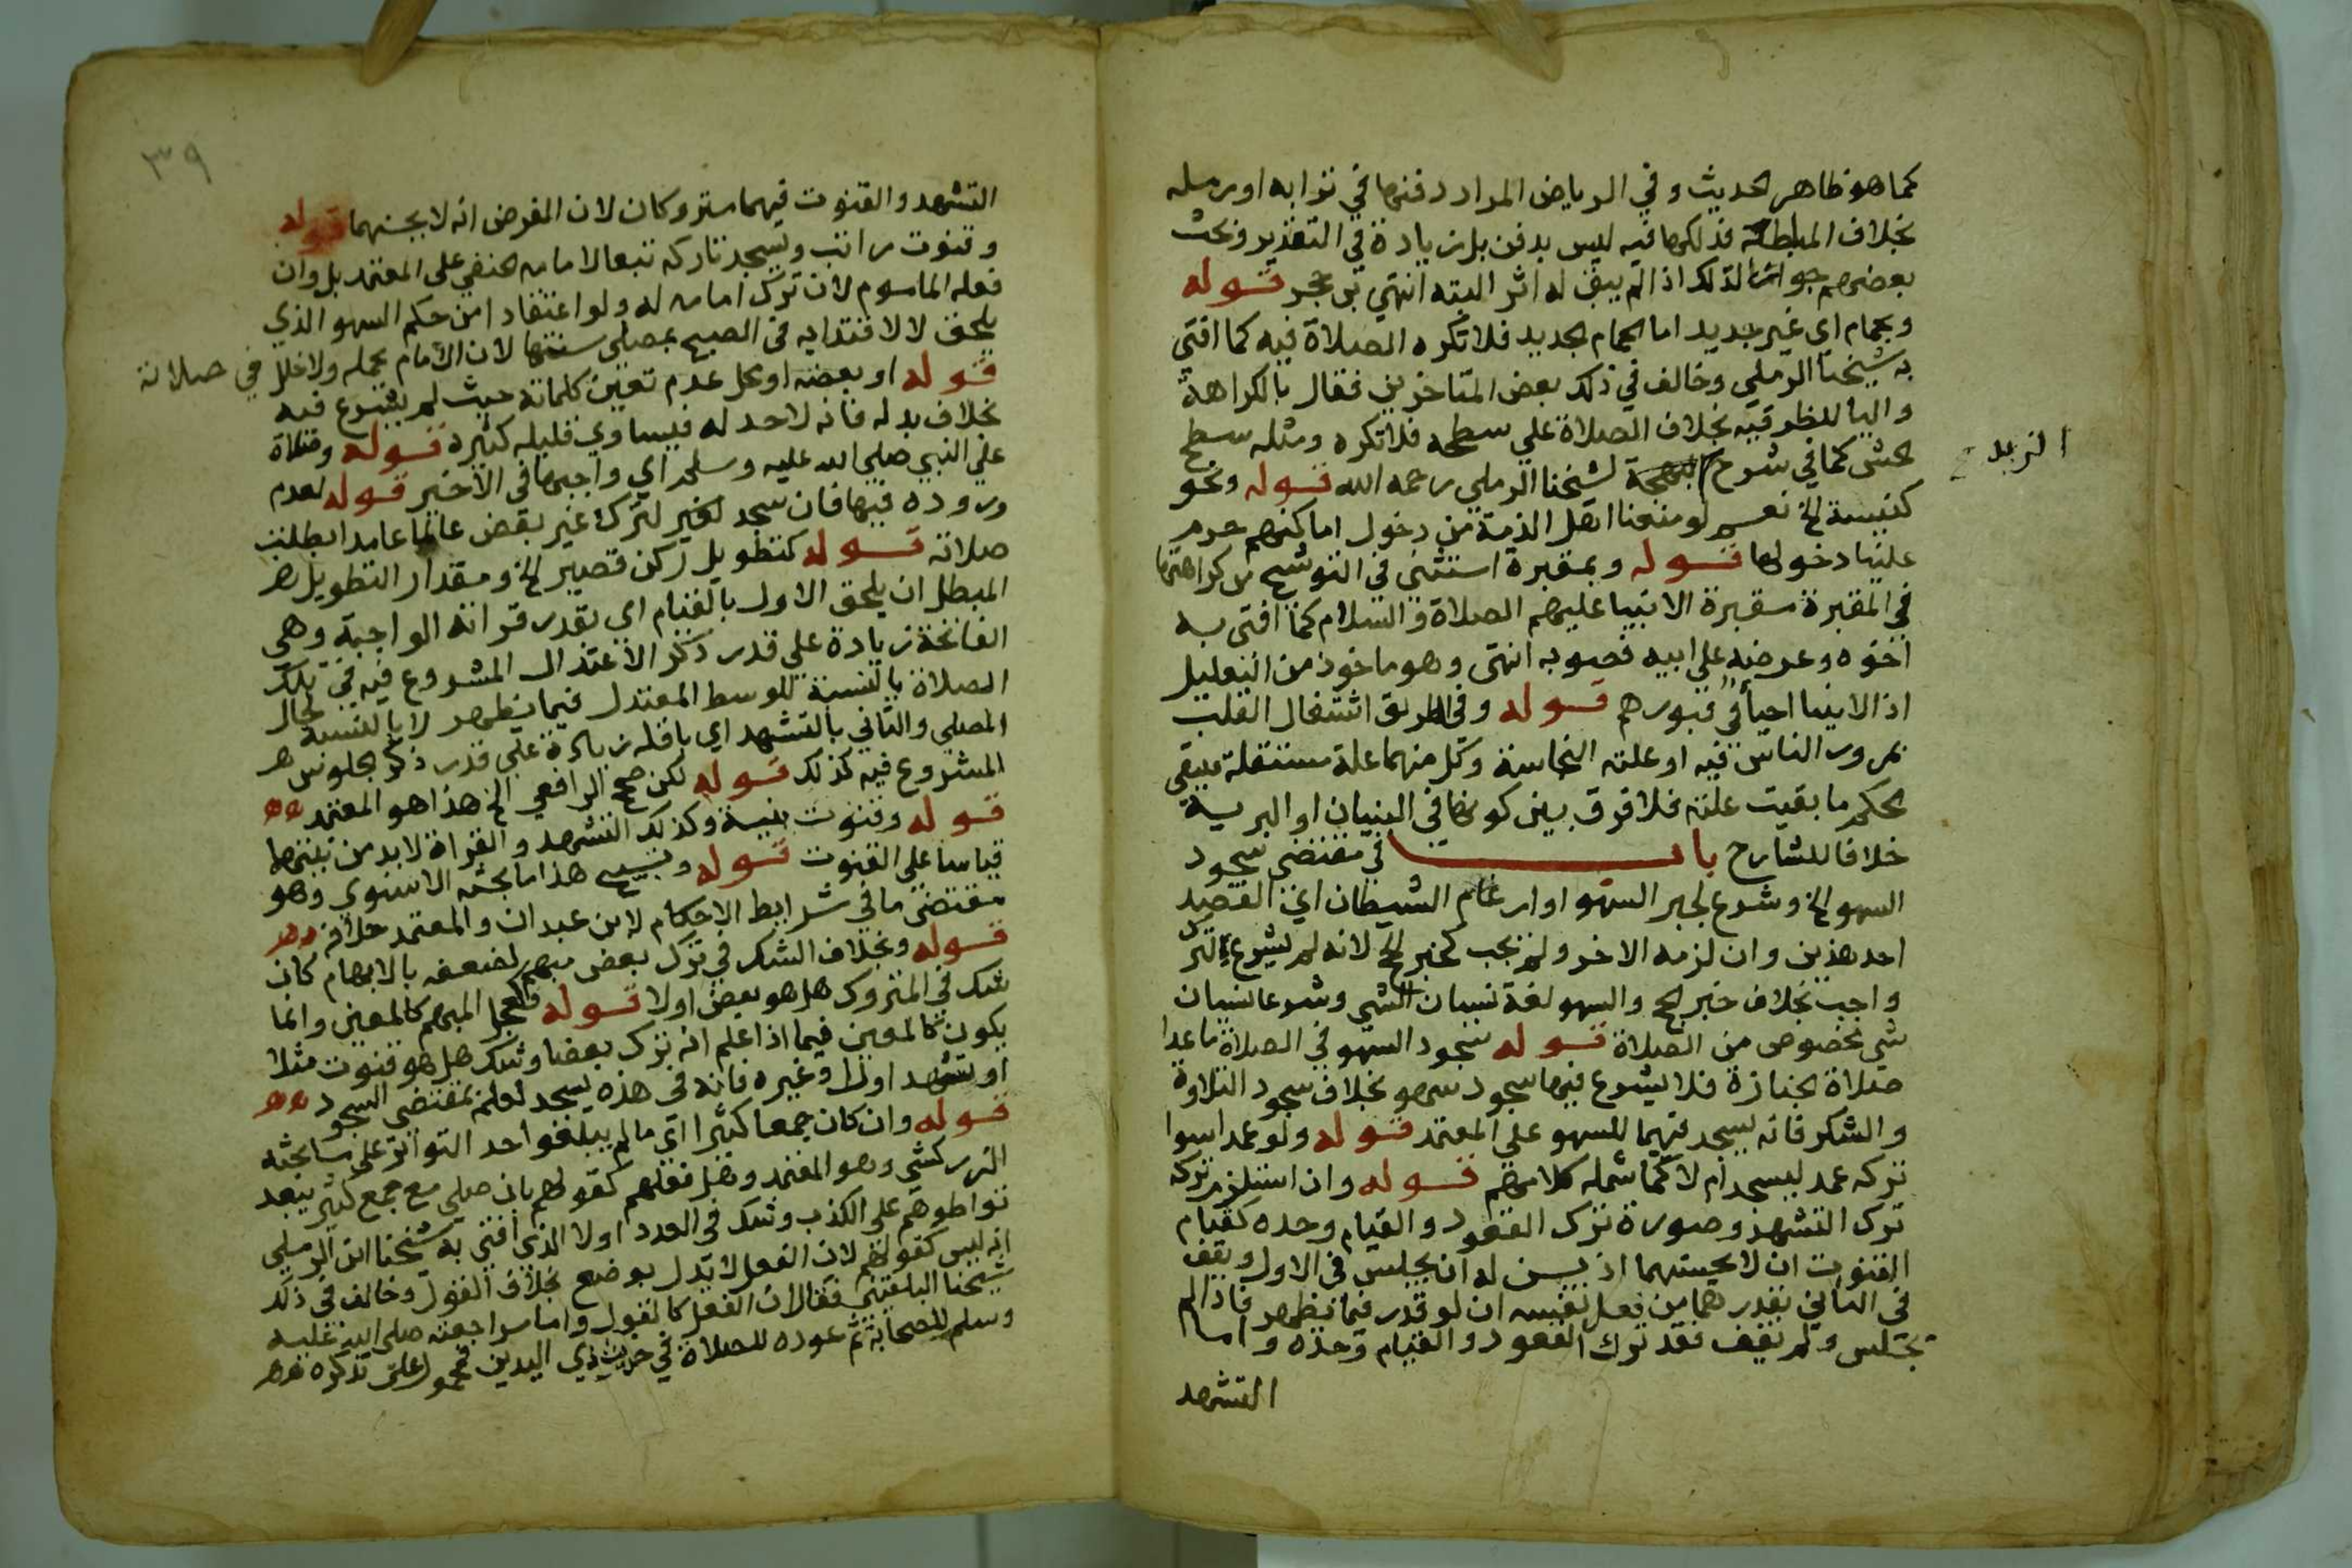 كما هو ظاهر الحديث وفي الرياض المراد دفنها في ترابه او رمله
بخلاف المبلطة فدلكها فيه ليس بدفن بل زيادة في التقذير وبحث
بعضهم جواز الدلك اذا لم يبق له اثر البته انتهى بن حجر قوله
وبحمام اي غير جديد اما الحمام الجديد فلا تكره الصلاة فيه كما افتى
به شيخنا الرملي وخالف في ذلك بعض المتاخرين فقال بالكراهة
والبا للظرفيه بخلاف الصلاة علي سطحه فلا تكره ومثله سطح
الحش كما في شرح البهجة لشيخنا الرملي رحمه الله قوله ونحو
الزبد صح
كنيسة الخ نعم لو منعنا اهل الذمة من دخول اماكنهم حرم
علينا دخولها قوله وبمقبرة استثنى في التوشيح من كراهتها
في المقبرة مقبرة الانبيا عليهم الصلاة والسلام كما افتى به
اخوه وعرضه على ابيه فصوبه انتهى وهو ماخوذ من التعليل
اذ الانبيا احياء في قبورهم قوله وفي الطريق اشتغال القلب
بمرور الناس فيه او علته النجاسة وكل منهما علة مستقلة فيبقى
الحكم ما بقيت علته فلا فرق بين كونها في البنيان او البرية
خلافا للشارح باب في مقتضي سجود
السهو الخ وشرع لجبر السهو او ارغام الشيطان اي القصد
احد هذين وان لزمه الاخر ولم يجب كجبر الحج لانه لم يشرع لترك
واجب بخلاف جبر الحج والسهو لغة نسيان الشي وشرعا نسيان
شي مخصوص من الصلاة قوله سجود السهو في الصلاة ما عدا
صلاة الجنازة فلا يشرع فيها سجود سهو بخلاف سجود التلاوة
والشكر فانه يسجد فيهما للسهو علي المعتمد قوله ولو عمدا سوا
تركه عمد ليسجد ام لا كما شمله كلامهم قوله وان استلزم تركه
ترك التشهد وصورة ترك القعود والقيام وحده كقيام
القنوت ان لا يحسنهما اذ يسن له ان يجلس في الاول ويقف
في الثاني بقدرهما من فعل نفسه ان لو قدر فيما يظهر فاذا لم
يجلس ولم يقف فقد ترك القعود والقيام وحده واما
التشهد
٣٩
التشهد والقنوت فيهما متروكان لان الفرض انه لا يحسنهما قوله
وقنوت راتب ويسجد تاركه تبعا لامامه الحنفي على المعتمد بل وان
فعله الماموم لان ترك امامه له ولو اعتقادا من حكم السهو الذي
يلحق لا لاقتدايه في الصبح بمصلي سنتها لان الامام يحمله ولا خلل في صلاته
قوله او بعضه او محل عدم تعيين كلماته حيث لم يشرع فيه
بخلاف بدله فانه لا حد له فيساوي قليله كثيره قوله وصلاة
علي النبي صلي الله عليه وسلم اي واجبها في الاخير قوله لعدم
وروده فيها فان سجد لغير لترك غير بعض عالما عامدا بطلت
صلاته قوله كتطويل ركن قصير الخ ومقدار التطويل هـ
المبطل ان يلحق الاول بالقيام اي بقدر قرانه الواجبة وهي
الفاتحة زيادة علي قدر ذكر الاعتدال المشروع فيه في تلك
الصلاة بالنسبة للوسط المعتدل فيما يظهر لا بالنسبة لحال
المصلي والثاني بالتشهد اي باقله زيادة علي قدر ذكر الجلوس هـ
المشروع فيه كذلك قوله لكن صحح الرافعي الخ هذا هو المعتمد هـ هـ
قوله وقنوت بنية وكذلك التشهد والقراة لا بد من نيتها
قياسا على القنوت قوله وتسبيح هذا ما بحثه الاسنوي وهو
مقتضي ما في شرايط الاحكام لابن عبدان والمعتمد خلافه هـ هـ
قوله وبخلاف الشك في ترك بعض مبهم لضعفه بالابهام كان
شك في المتروك هل هو بعض اولا قوله المبهم كالمعين وانما
يكون كالمعين فيما اذا علم انه ترك بعضا وشك هل هو قنوت مثلا
او تشهد اول او غيره فانه في هذه يسجد لعلمه بمقتضي السجود هـ هـ
قوله وان كان جمعا كثيرا اي ما لم يبلغوا حد التواتر على ما بحثه
الزركشي وهو المعتمد وهل فعلهم كقولهم بان صلي مع جمع كثير يبعد
تواطوهم على الكذب وشك في العدد اولا الذي افتى به شيخنا ابن الرملي
انه ليس كقولهم لان الفعل لا يدل بوضع بخلاف القول وخالف في ذلك
شيخنا البلقيني فقال ان الفعل كالقول واما مراجعته صلى الله عليه
وسلم للصحابة ثم عوده للصلاة في خبر ذي اليدين فمحمول على تذكره هـ هـ